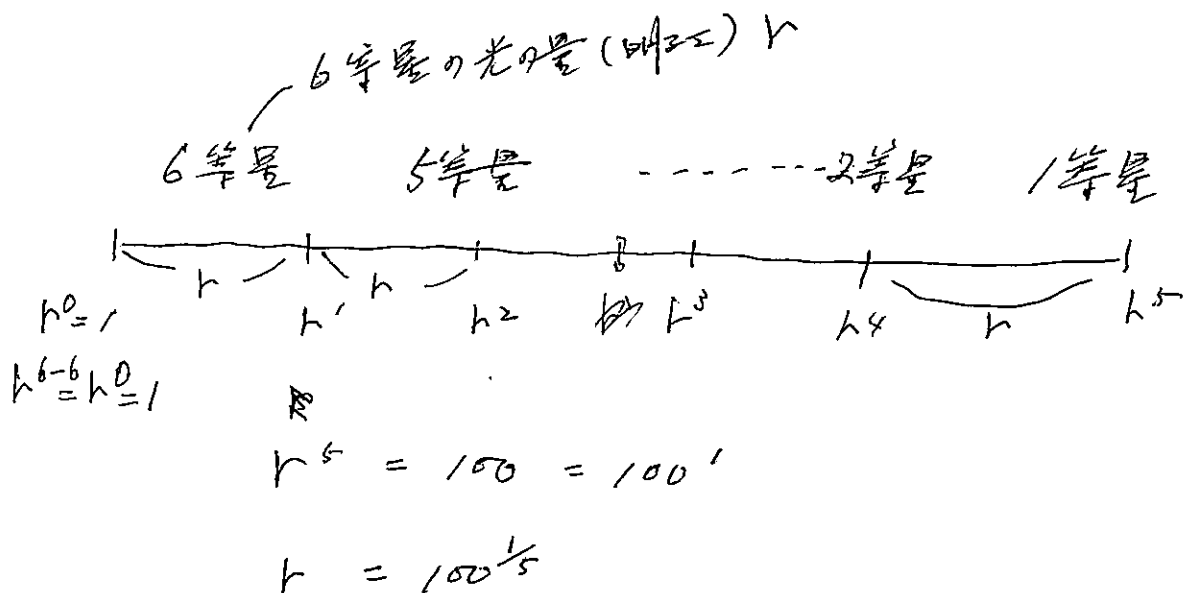 6等星の光の量(배수로) r
6等星 5等星 ------- 2等星 1等星
r r r
r⁰=1 r¹ r² r³ r⁴ r⁵
r⁶⁻⁶=r⁰=1
r⁵ = 100 = 100¹
r = 100^(1/5)